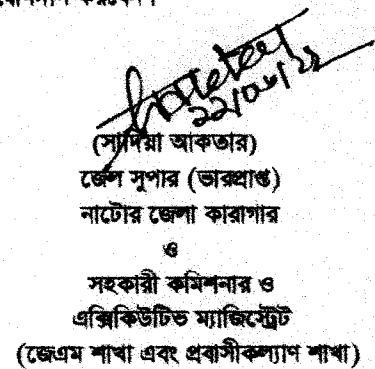 ২২/০৬/২২
(সাদিয়া আকতার)
জেল সুপার (ভারপ্রাপ্ত)
নাটোর জেলা কারাগার
ও
সহকারী কমিশনার ও
এক্সিকিউটিভ ম্যাজিস্ট্রেট
(জেএম শাখা এবং প্রবাসীকল্যাণ শাখা)